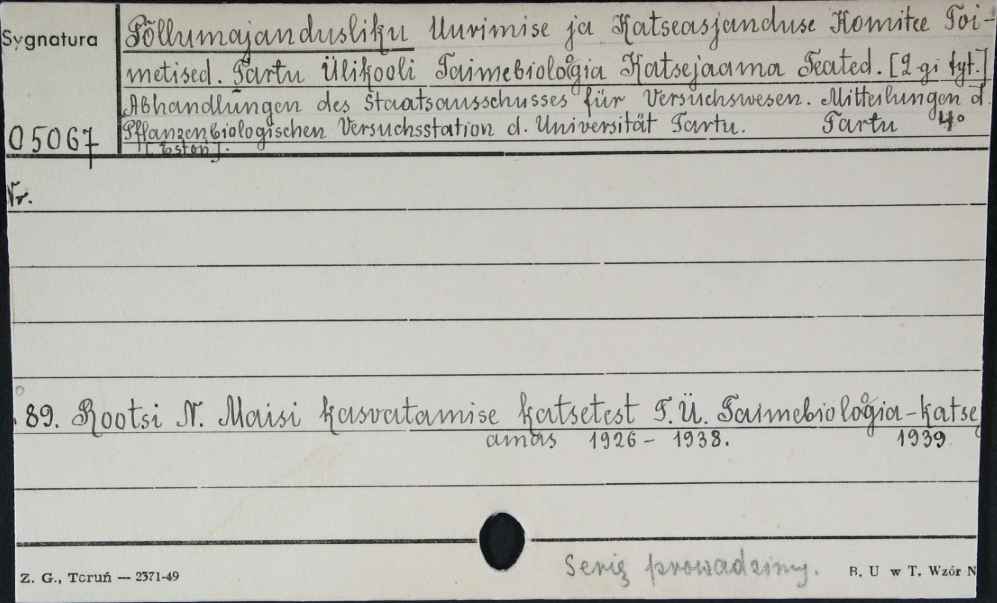 Sygnatura
Põllumajandusliku Uurimise ja Katseasjanduse Komitee Toi-
metised. Tartu Ülikooli Taimebioloogia Katsejaama Teated. [2-gi tyt.]
Abhandlungen des Staatsausschusses für Versuchswesen. Mitteilungen d.
05067
Pflanzenbiologischen Versuchsstation d. Universität Tartu. Tartu 4°
[Eston].
Nr.
89. Rootsi N. Maisi kasvatamise katsetest T.Ü. Taimebioloogia-katse
amas 1926 - 1938. 1939
Serię prowadzimy.
Z. G., Toruń — 2371-49
B. U w T. Wzór N